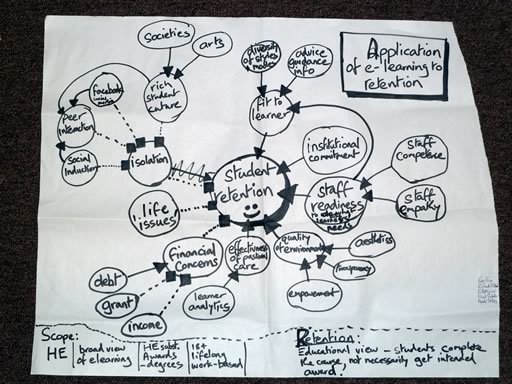 Societies
arts
diversity
of styles
modes
advice
guidance
info
Application
of e-learning to
retention
facebook
rich
student
culture
fit to
learner
Peer
interaction
Social
Induction
isolation
student
retention
institutional
commitment
Staff
competence
Staff
readiness
needs
Staff
empathy
life
issues
financial
concerns
effectiveness
of pastoral
care
quality
of environment
aesthetics
transparency
empowerment
debt
grant
income
learner
analytics
Scope:
HE
broad view
of elearning
HE subst.
Awards
-degrees
18+
lifelong
work-based
Retention:
Educational view - students complete
the course, not necessarily get intended
award.